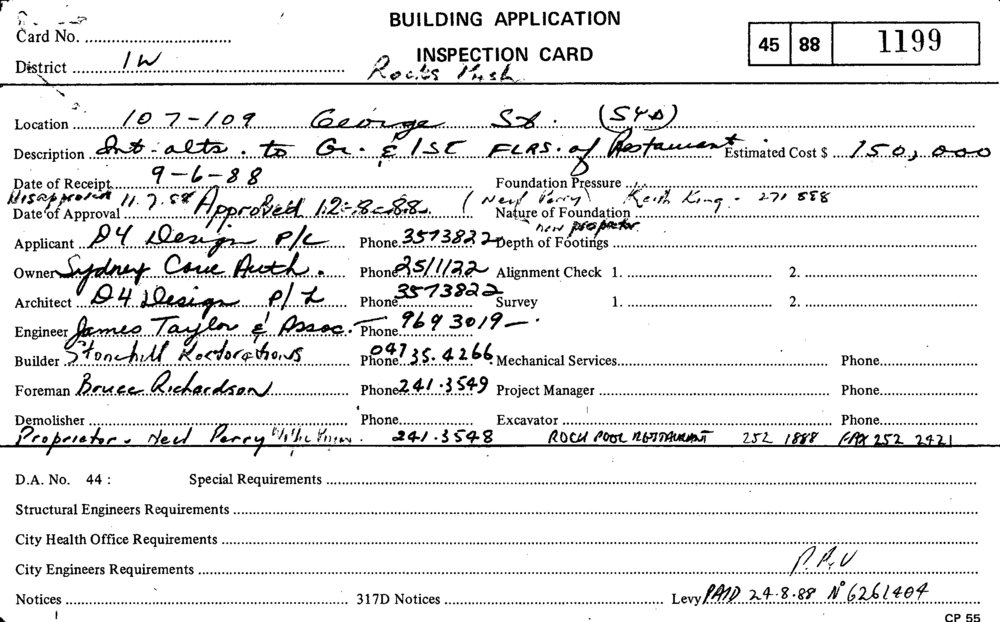 BUILDING APPLICATION
Card No.
INSPECTION CARD
45 88 1199
District 1W
Rocks Push
Location 107-109 George St. (SYD)
Description Int. alts. to Gr. & 1ST FLRS. of Restaurant Estimated Cost $ 150,000
Date of Receipt 9-6-88 Foundation Pressure
Disapproved 11.7.88 (Neil Perry) Keith King - 271 888
Date of Approval Approved 12-8-88. Nature of Foundation
new proprietor
Applicant D4 Design P/L Phone 3573822 Depth of Footings
Owner Sydney Cove Auth. Phone 251122 Alignment Check 1. 2.
Architect D4 Design P/L Phone 3573822 Survey 1. 2.
Engineer James Taylor & Assoc. Phone 969 3019
Builder Stonehill Restorations Phone 047 35.4266 Mechanical Services Phone
Foreman Bruce Richardson Phone 241.3549 Project Manager Phone
Demolisher Phone Excavator Phone
Proprietor. Neil Perry 241.3548 ROCK POOL RESTAURANT 252 1888 FAX 252 2421
D.A. No. 44 : Special Requirements
Structural Engineers Requirements
City Health Office Requirements
City Engineers Requirements
Notices 317D Notices Levy PAID 24.8.88 Nº 6261404
CP 55